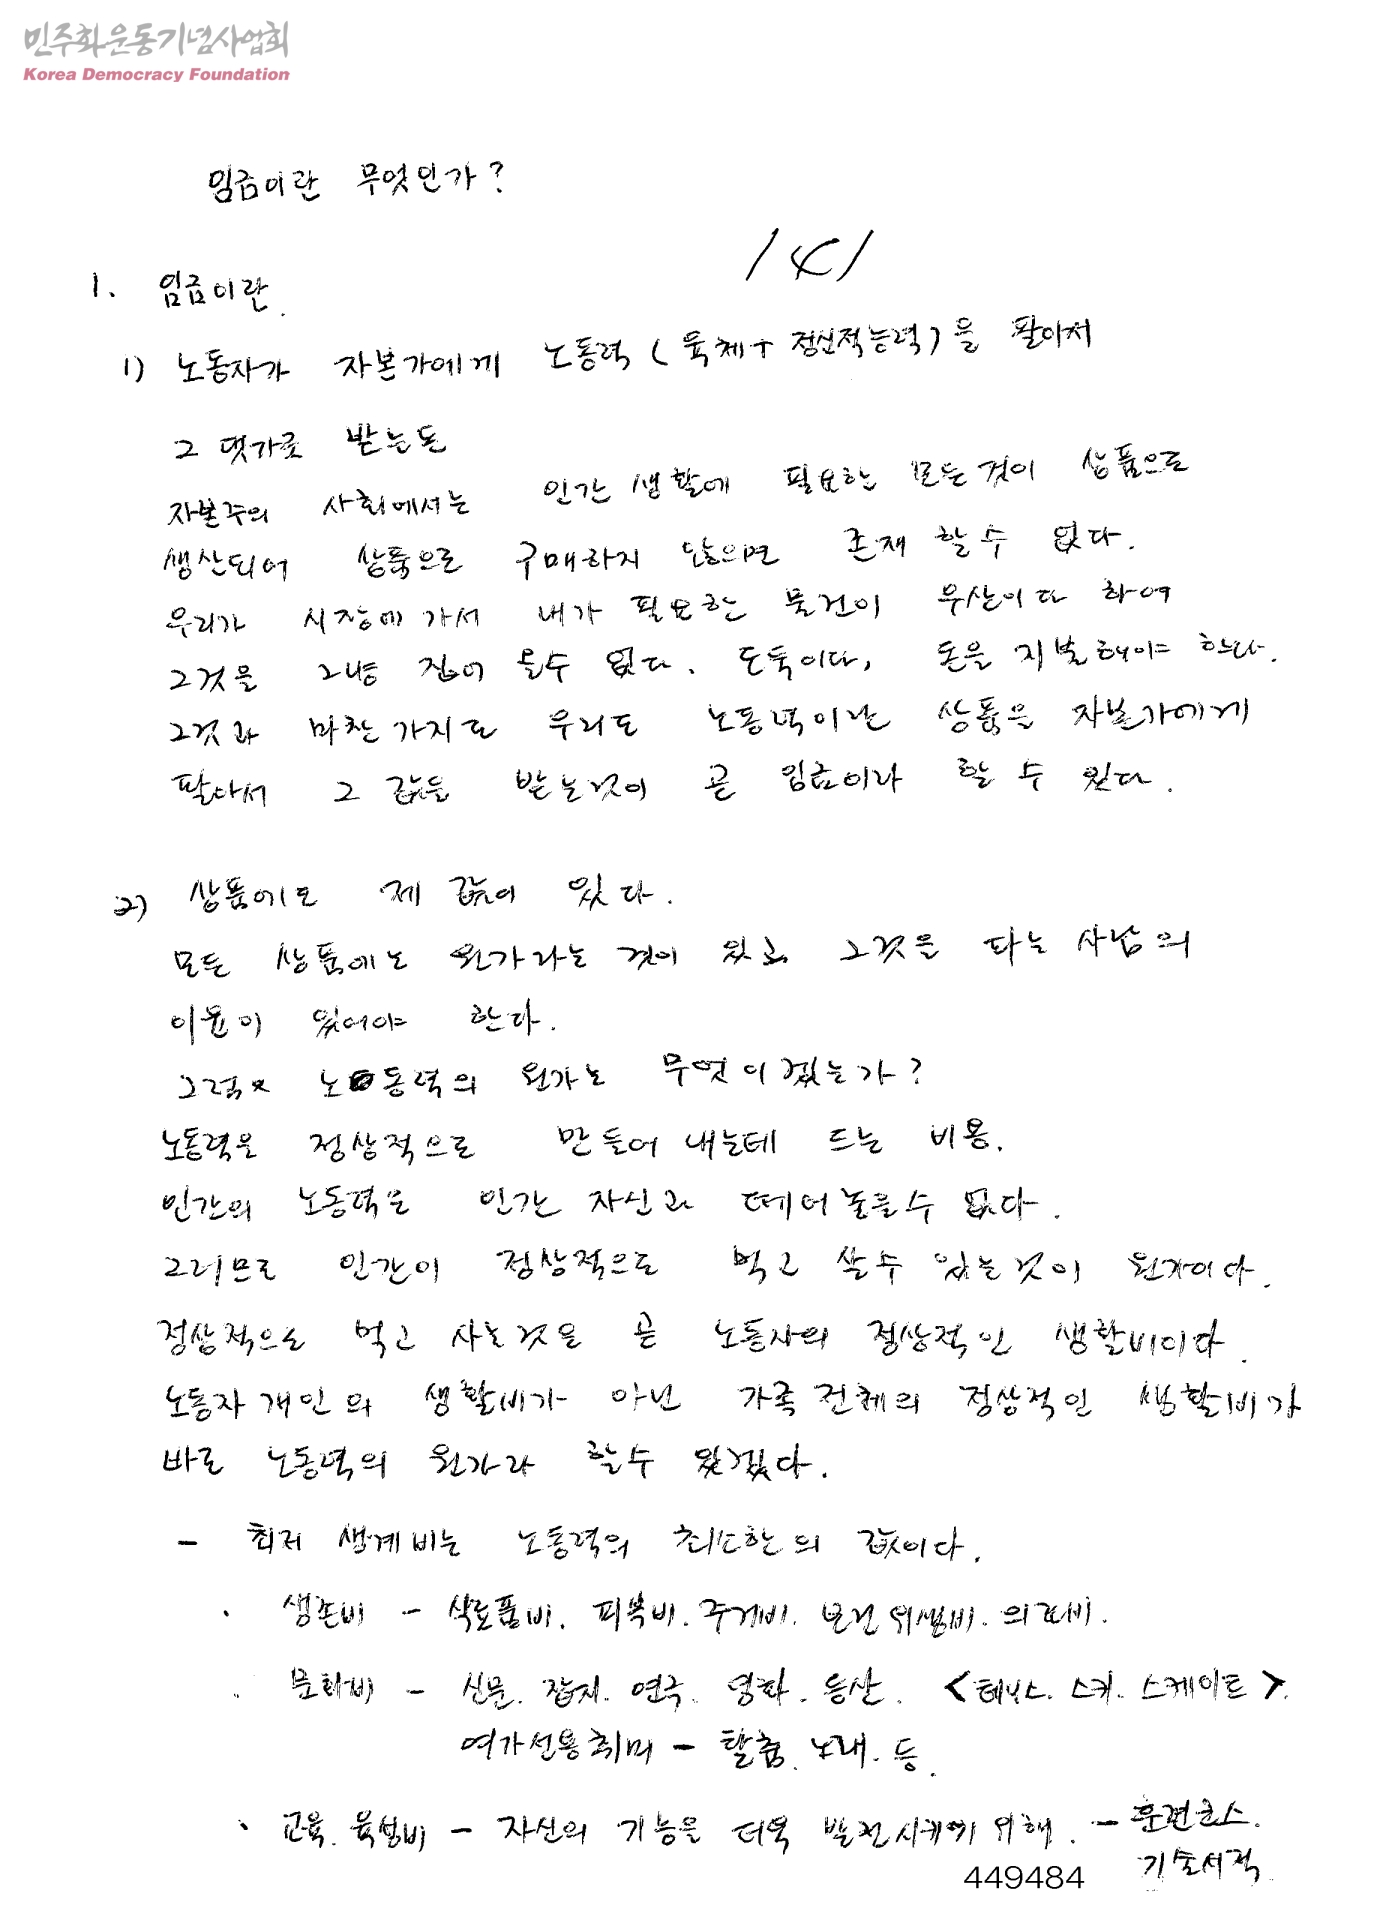 민주화운동기념사업회
Korea Democracy Foundation
임금이란 무엇인가?
141
1. 임금이란.
1) 노동자가 자본가에게 노동력 (육체+정신적능력)을 팔아서
그 댓가로 받는돈
자본주의 사회에서는 인간 생활에 필요한 모든것이 상품으로
생산되어 상품으로 구매하지 않으면 존재 할수 없다.
우리가 시장에 가서 내가 필요한 물건이 우산이다 하여
그것을 그냥 집어 올수 없다. 도둑이다, 돈을 지불해야 한다.
그것과 마찬가지로 우리도 노동력이란 상품을 자본가에게
팔아서 그 값을 받는것이 곧 임금이라 할 수 있다.
2) 상품에도 제 값이 있다.
모든 상품에는 원가라는 것이 있고 그것을 파는 사람의
이윤이 있어야 한다.
그럼 노동력의 원가는 무엇이겠는가?
노동력을 정상적으로 만들어 내는데 드는 비용.
인간의 노동력은 인간 자신과 떼어놓을수 없다.
그러므로 인간이 정상적으로 먹고 살수 있는것이 원가이다.
정상적으로 먹고 사는것은 곧 노동자의 정상적인 생활비이다.
노동자 개인의 생활비가 아닌 가족전체의 정상적인 생활비가
바로 노동력의 원가라 할수 있겠다.
- 최저 생계비는 노동력의 최소한의 값이다.
· 생존비 - 식료품비. 피복비. 주거비. 보건위생비. 의료비.
· 문화비 - 신문. 잡지. 연극. 영화. 등산. <테니스. 스키. 스케이트>.
여가선용취미 - 탈춤. 노래. 등.
· 교육. 육성비 - 자신의 기능을 더욱 발전시키기 위해. - 훈련코스.
기술서적.
449484